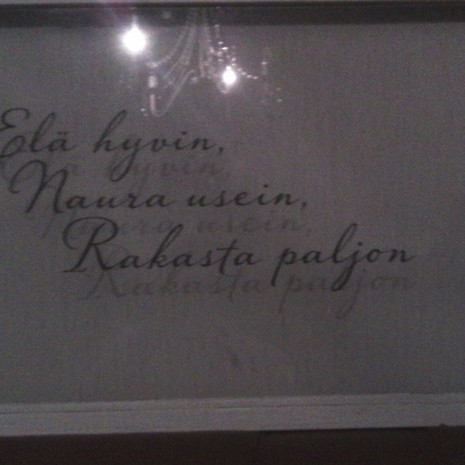 Elä hyvin,
Naura usein,
Rakasta paljon